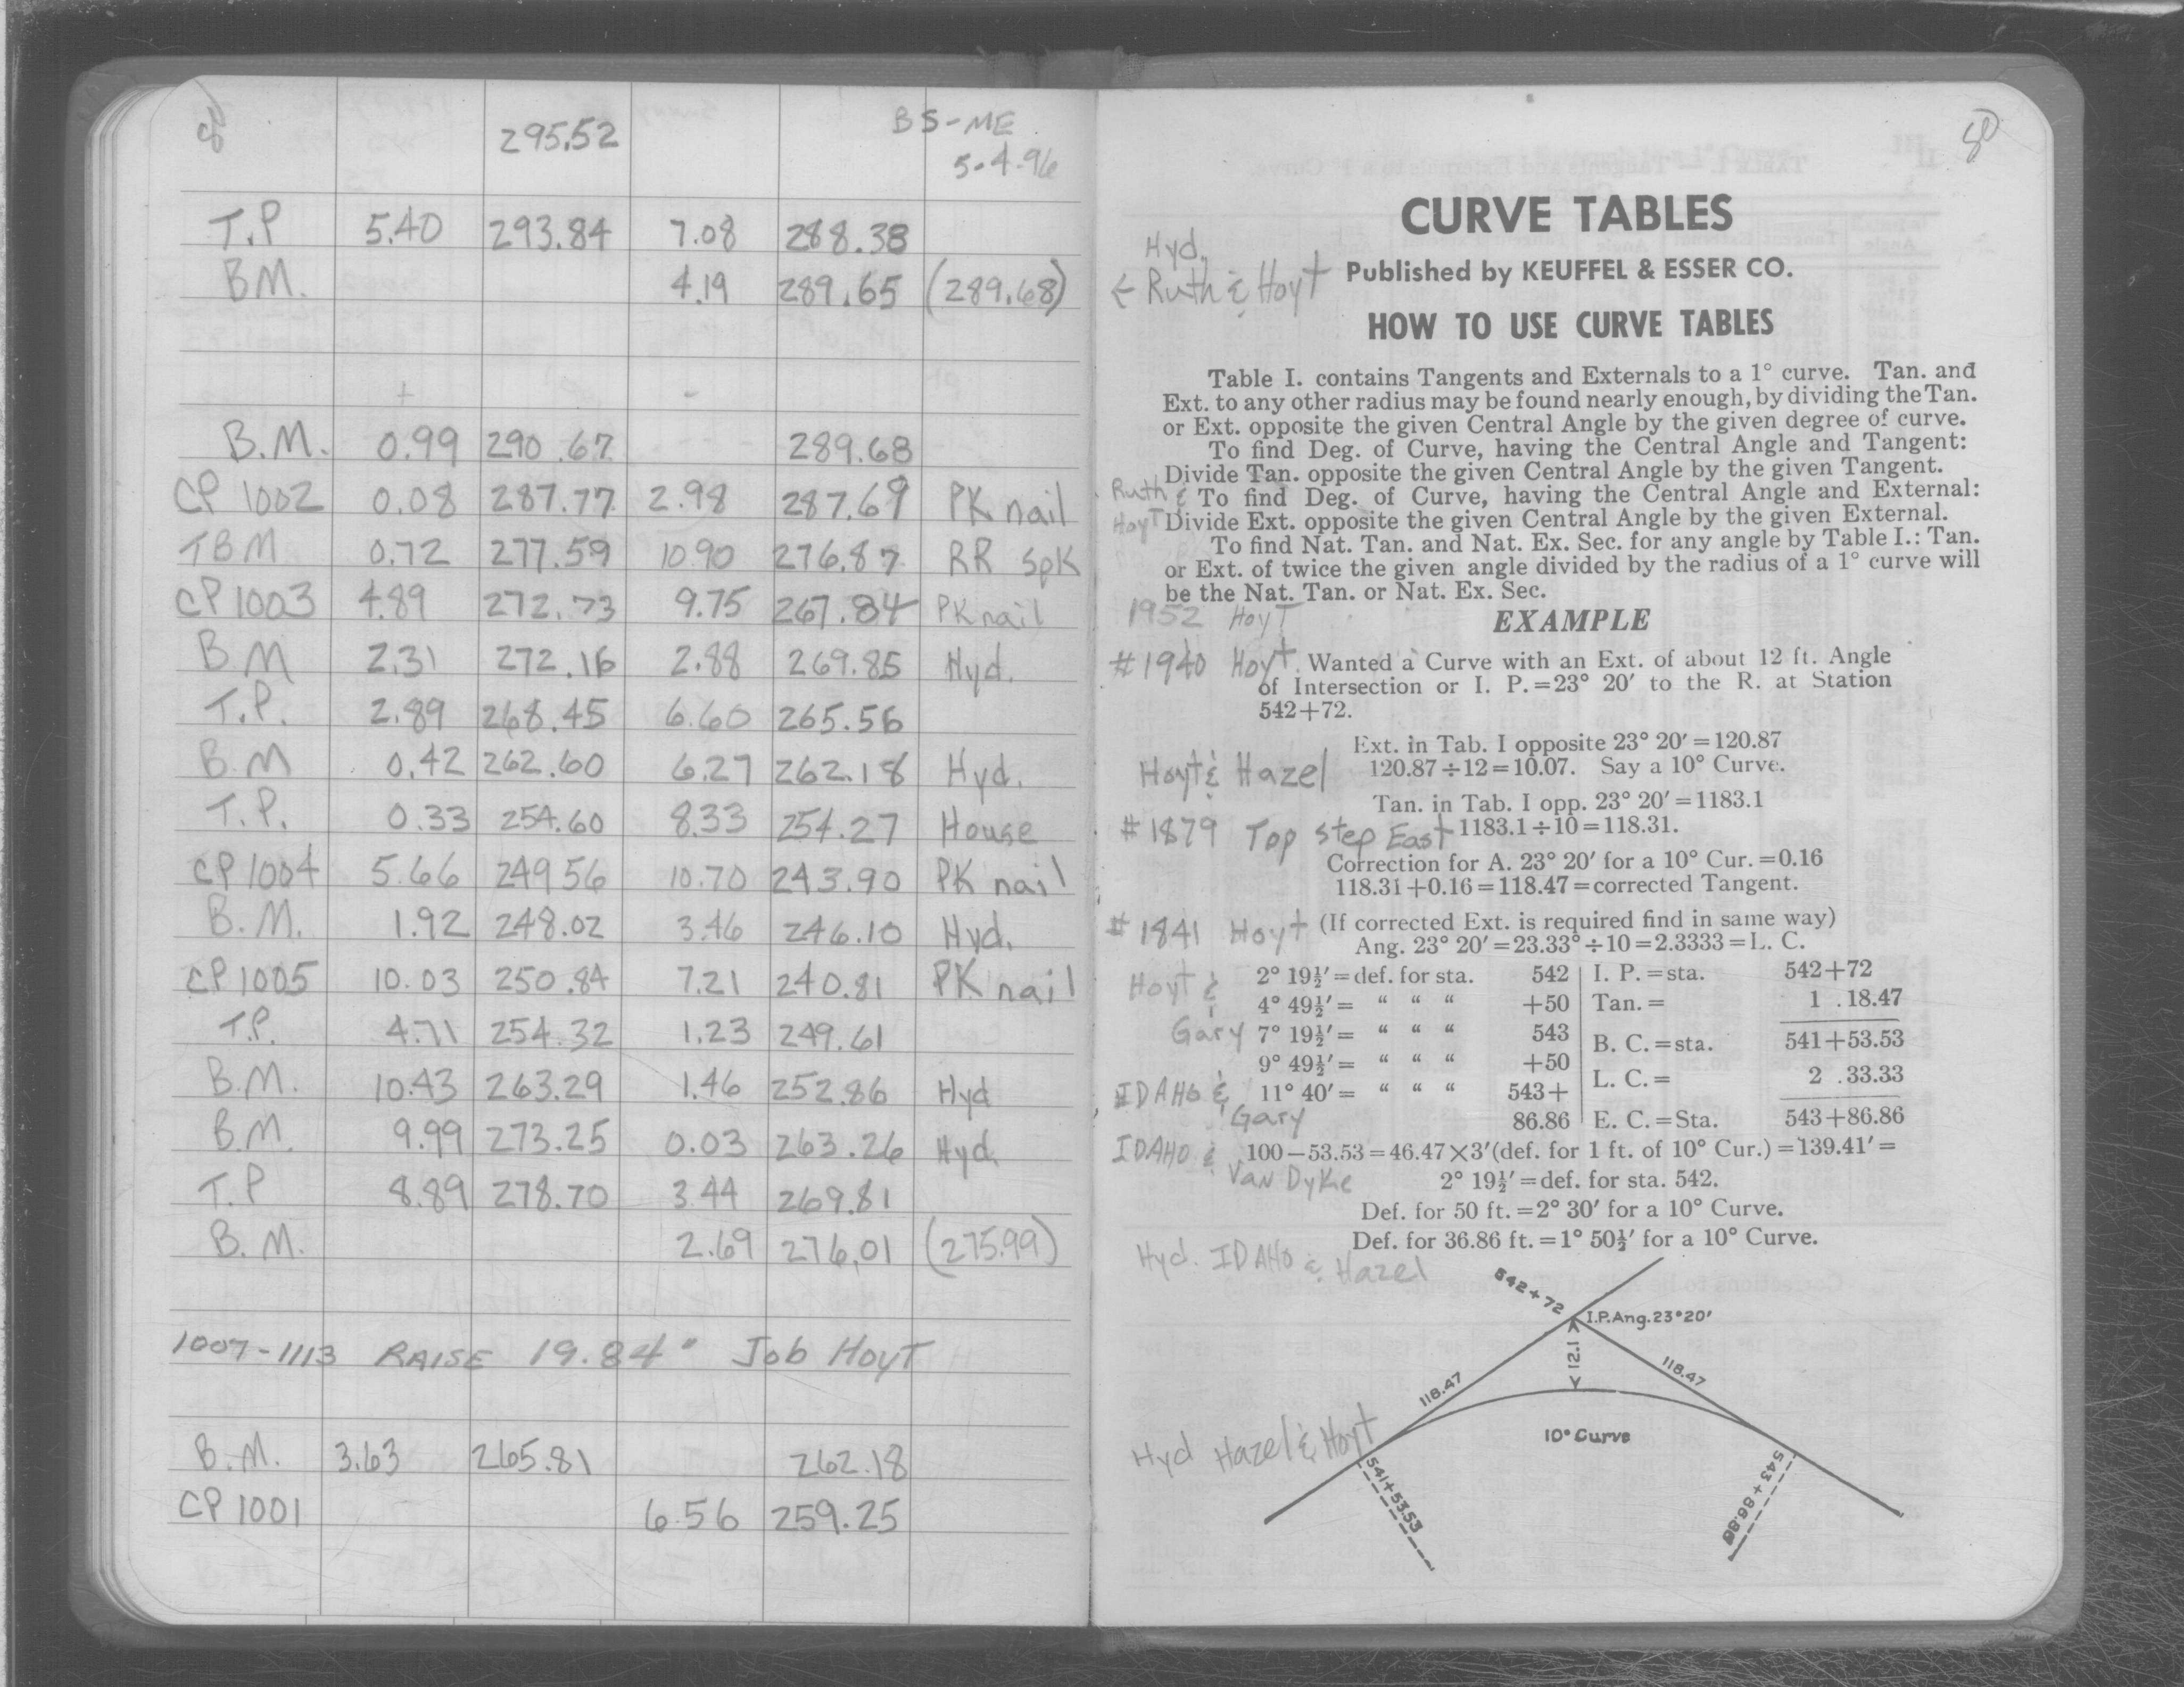 8 295.52 BS-ME
5-4-96
T.P 5.40 293.84 7.08 288.38
B.M. 4.19 289.65 (289.68)
+ -
B.M. 0.99 290.67 289.68
CP 1002 0.08 287.77 2.98 287.69 PK nail
TBM 0.72 277.59 10.90 276.87 RR SpK
CP 1003 4.89 272.73 9.75 267.84 PK nail
B.M 2.31 272.16 2.88 269.85 Hyd.
T.P. 2.89 268.45 6.60 265.56
B.M 0.42 262.60 6.27 262.18 Hyd.
T.P. 0.33 254.60 8.33 254.27 House
CP 1004 5.66 249.56 10.70 243.90 PK nail
B.M. 1.92 248.02 3.46 246.10 Hyd.
CP 1005 10.03 250.84 7.21 240.81 PK nail
T.P. 4.71 254.32 1.23 249.61
B.M. 10.43 263.29 1.46 252.86 Hyd
B.M. 9.99 273.25 0.03 263.26 Hyd.
T.P 8.89 278.70 3.44 269.81
B.M. 2.69 276.01 (275.99)
1007-1113 RAISE 19.84" Job HOYT
B.M. 3.63 265.81 262.18
CP 1001 6.56 259.25
8
CURVE TABLES
Hyd.
Published by KEUFFEL & ESSER CO.
← Ruth & Hoyt
HOW TO USE CURVE TABLES
Table I. contains Tangents and Externals to a 1° curve. Tan. and
Ext. to any other radius may be found nearly enough, by dividing the Tan.
or Ext. opposite the given Central Angle by the given degree of curve.
To find Deg. of Curve, having the Central Angle and Tangent:
Divide Tan. opposite the given Central Angle by the given Tangent.
Ruth & To find Deg. of Curve, having the Central Angle and External:
Hoyt Divide Ext. opposite the given Central Angle by the given External.
To find Nat. Tan. and Nat. Ex. Sec. for any angle by Table I.: Tan.
or Ext. of twice the given angle divided by the radius of a 1° curve will
be the Nat. Tan. or Nat. Ex. Sec.
1952 HoyT
EXAMPLE
#1940 Hoyt. Wanted a Curve with an Ext. of about 12 ft. Angle
of Intersection or I. P.=23° 20′ to the R. at Station
542+72.
Ext. in Tab. I opposite 23° 20′=120.87
Hoyt & Hazel 120.87÷12=10.07. Say a 10° Curve.
Tan. in Tab. I opp. 23° 20′=1183.1
#1879 Top step East 1183.1÷10=118.31.
Correction for A. 23° 20′ for a 10° Cur.=0.16
118.31+0.16=118.47=corrected Tangent.
#1841 Hoyt (If corrected Ext. is required find in same way)
Ang. 23° 20′=23.33°÷10=2.3333=L. C.
Hoyt & 2° 19½′=def. for sta. 542 I. P.=sta. 542+72
4° 49½′= “ “ “ +50 Tan.= 1 .18.47
Gary 7° 19½′= “ “ “ 543 B. C.=sta. 541+53.53
9° 49½′= “ “ “ +50 L. C.= 2 .33.33
IDAHO & 11° 40′= “ “ “ 543+
Gary 86.86 E. C.=Sta. 543+86.86
IDAHO & 100−53.53=46.47×3′(def. for 1 ft. of 10° Cur.)=139.41′=
Van Dyke 2° 19½′=def. for sta. 542.
Def. for 50 ft.=2° 30′ for a 10° Curve.
Def. for 36.86 ft.=1° 50½′ for a 10° Curve.
Hyd. IDAHO & Hazel
542+72
I.P.Ang.23°20′
12.1
118.47
118.47
10° Curve
Hyd Hazel & Hoyt
541+53.53
543+86.86